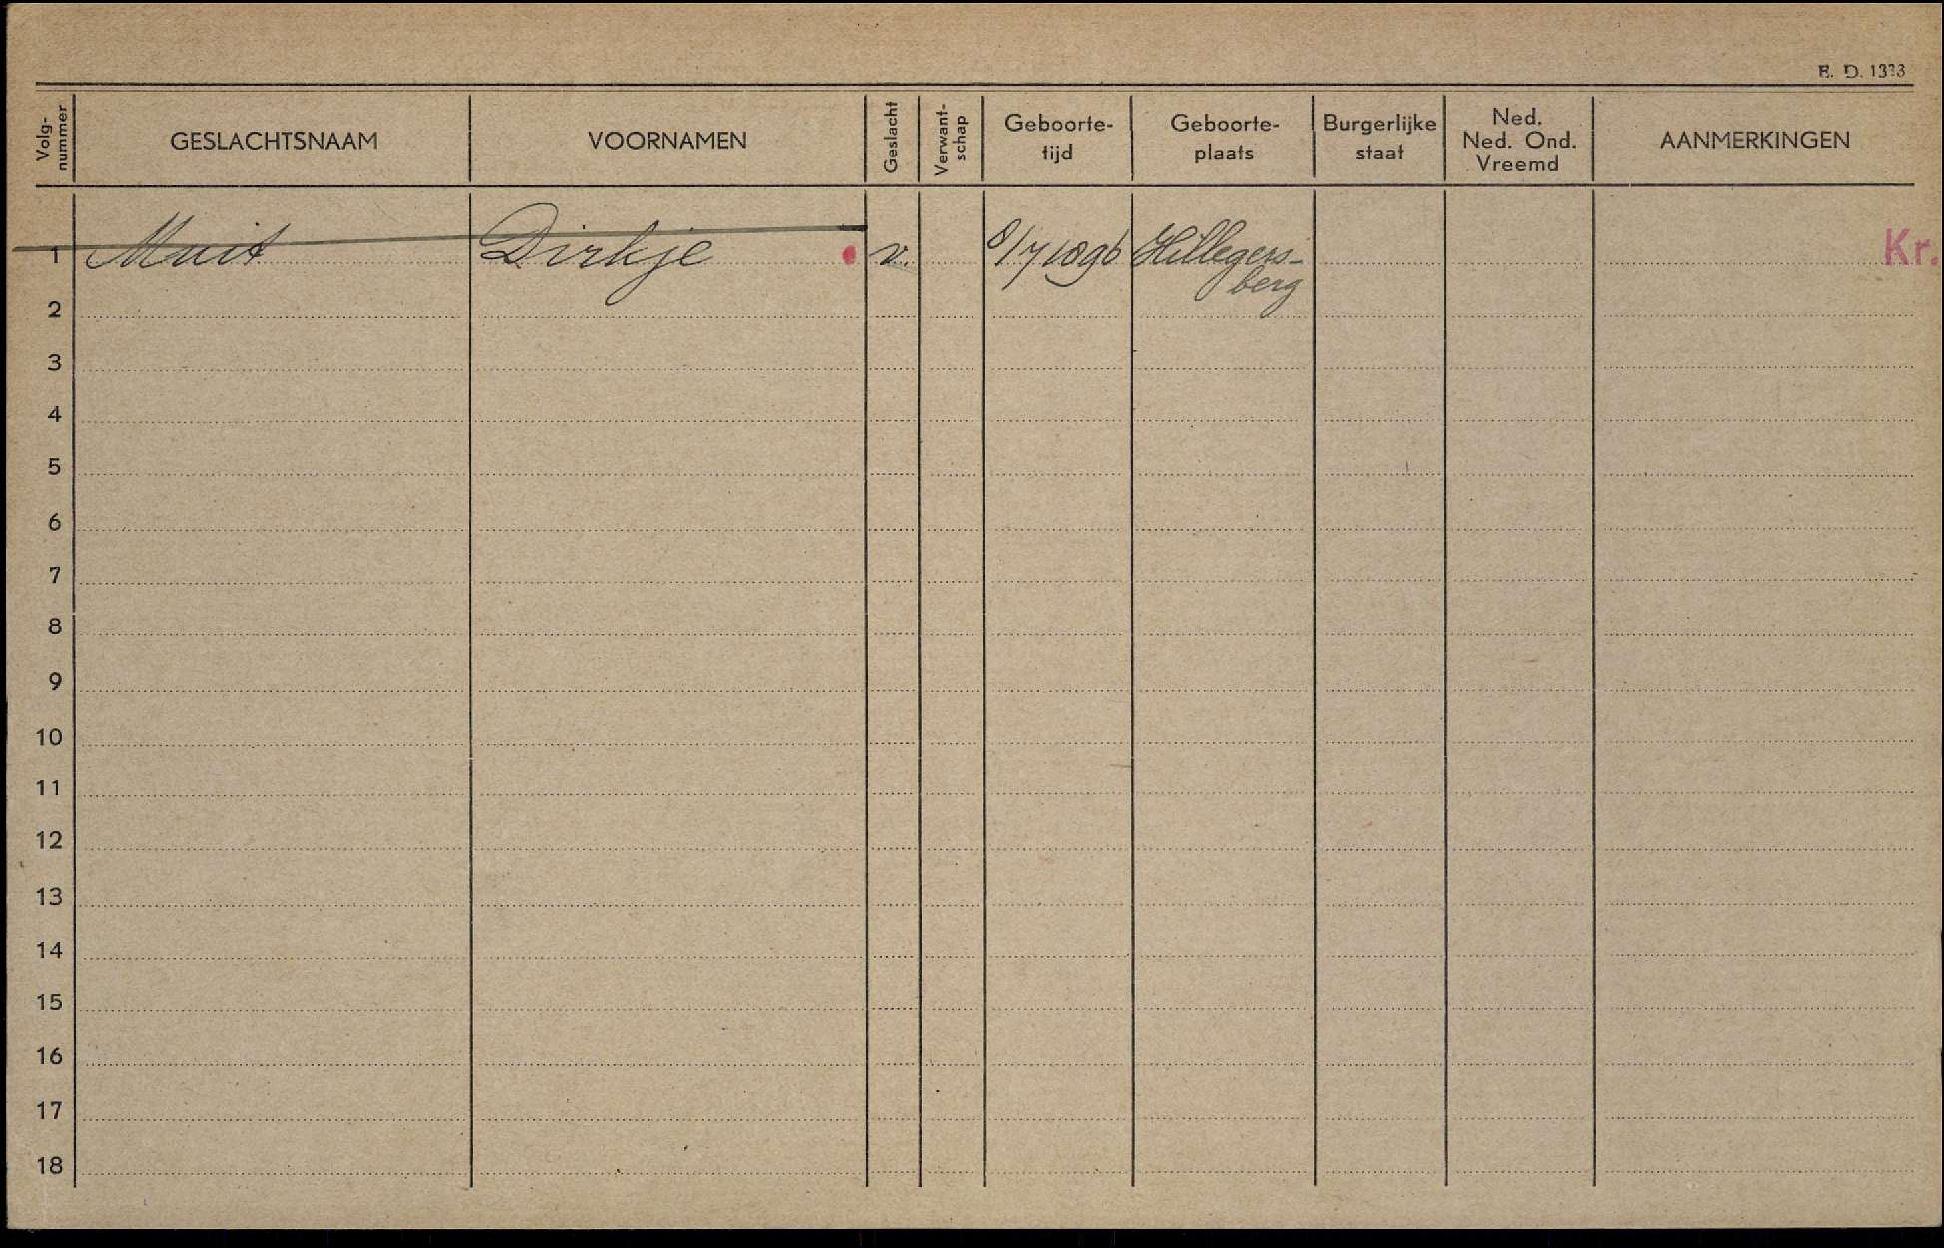 E. D. 1333
Volg-
nummer
GESLACHTSNAAM
VOORNAMEN
Geslacht
Verwant-
schap
Geboorte-
tijd
Geboorte-
plaats
Burgerlijke
staat
Ned.
Ned. Ond.
Vreemd
AANMERKINGEN
1 Muit Dirkje v. 8/7 1896 Hillegers-
berg
Kr.
2
3
4
5
6
7
8
9
10
11
12
13
14
15
16
17
18